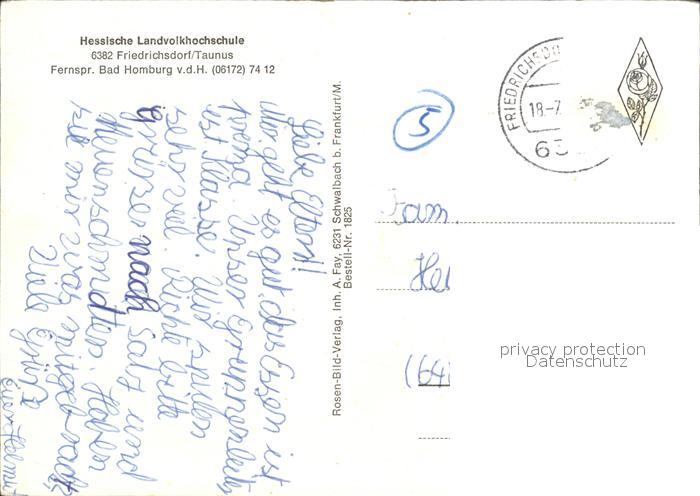 Hessische Landvolkhochschule
6382 Friedrichsdorf/Taunus
Fernspr. Bad Homburg v.d.H. (06172) 74 12
Liebe Eltern!
Mir geht es gut das Essen ist
prima. Unser Gruppenleiter
ist Klasse. Wir spielen
sehr viel. Richte bitte
Grüße nach Salz und
aus. Haben
sie mir was mitgebracht
Viele Grüße
Euer Helmut
Rosen-Bild-Verlag, Inh. A. Fay, 6231 Schwalbach b. Frankfurt/M.
Bestell-Nr. 1825
5
FRIEDRICHSDO
18.-7.
63
Fam.
Hel
(641
privacy protection
Datenschutz